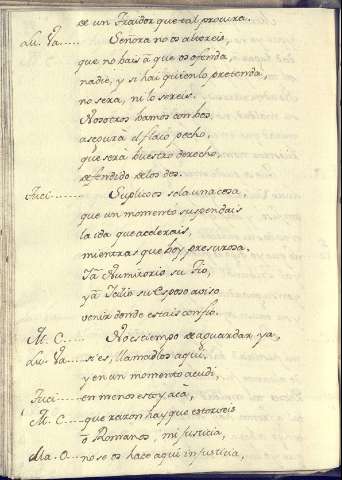 de un Traidor que tal procura.
Lu. Va..... Señora no os altereis,
que no hais á que os ofenda,
nadie, y si hai quien lo pretenda,
no sera, ni lo sereis.
Nosotros bamos con bos,
asegura el flaco pecho,
que será buestro derecho,
defendido de los dos.
Fuci..... Suplicoos sola una cosa,
que un momento suspendais
la ida que acelerais,
mientras que hoy presurosa.
Já Numitorio su Tio,
yá Icilio su Esposo aviso
venir donde estais confio.
M. C..... No es tiempo de aguardar ya,
Lu. Va..... si es, llamadlos aqui,
y en un momento acudi,
Fuci..... en menos estoy acá,
M. C..... que razon hay que estorveis
ó Romanos, mi justicia,
Ma. O..... no se os hace aqui injusticia,